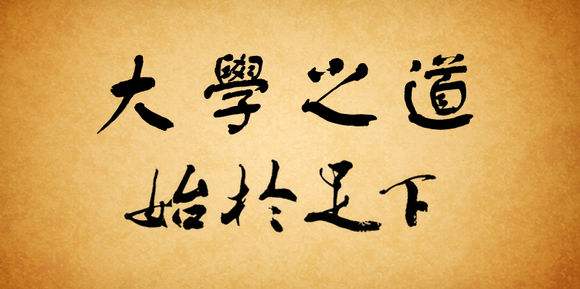 大學之道
始於足下